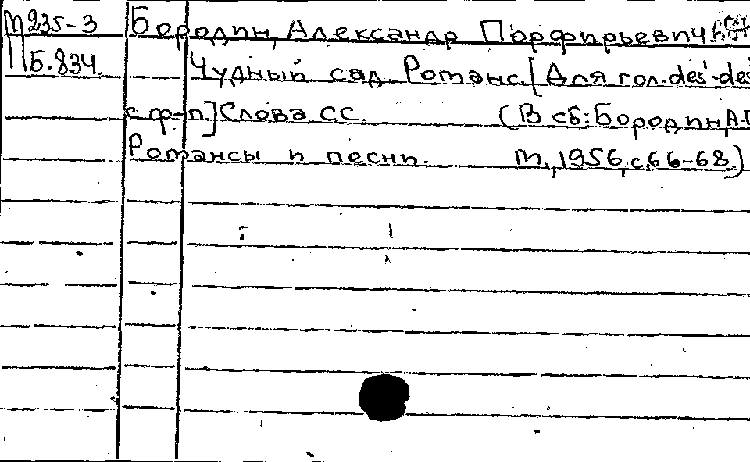 М235-3 Бородин, Александр Порфирьевич
П Б.834 Чудный сад. Романс. [Для гол. des'-des
с ф-п.] Слова СС. (В сб: Бородин, А.П
Романсы и песни. М., 1956, с.66-68.)